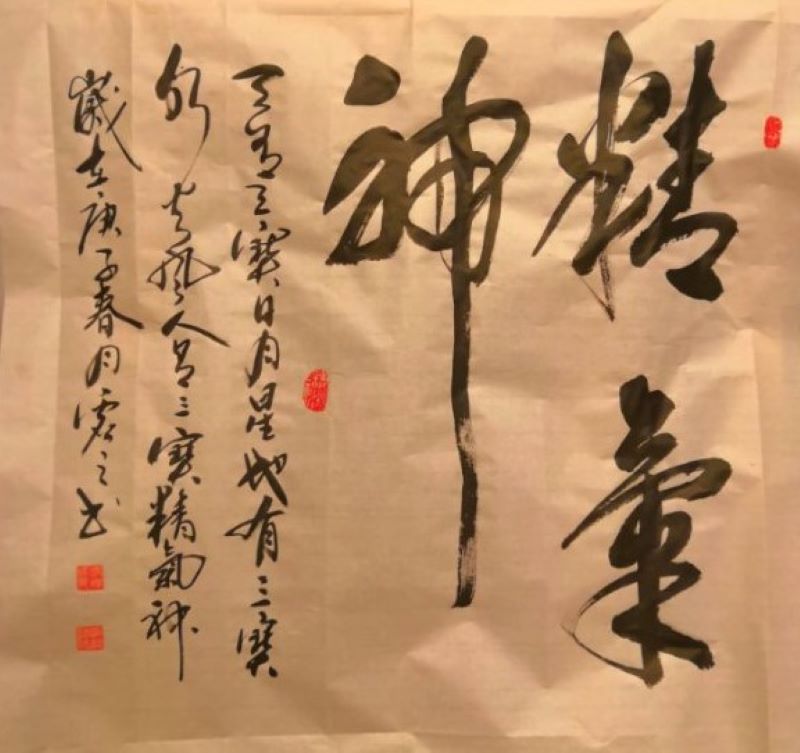 精氣
神
天有三寶日月星地有三寶
水火風人有三寶精氣神
歲在庚子春月 之书